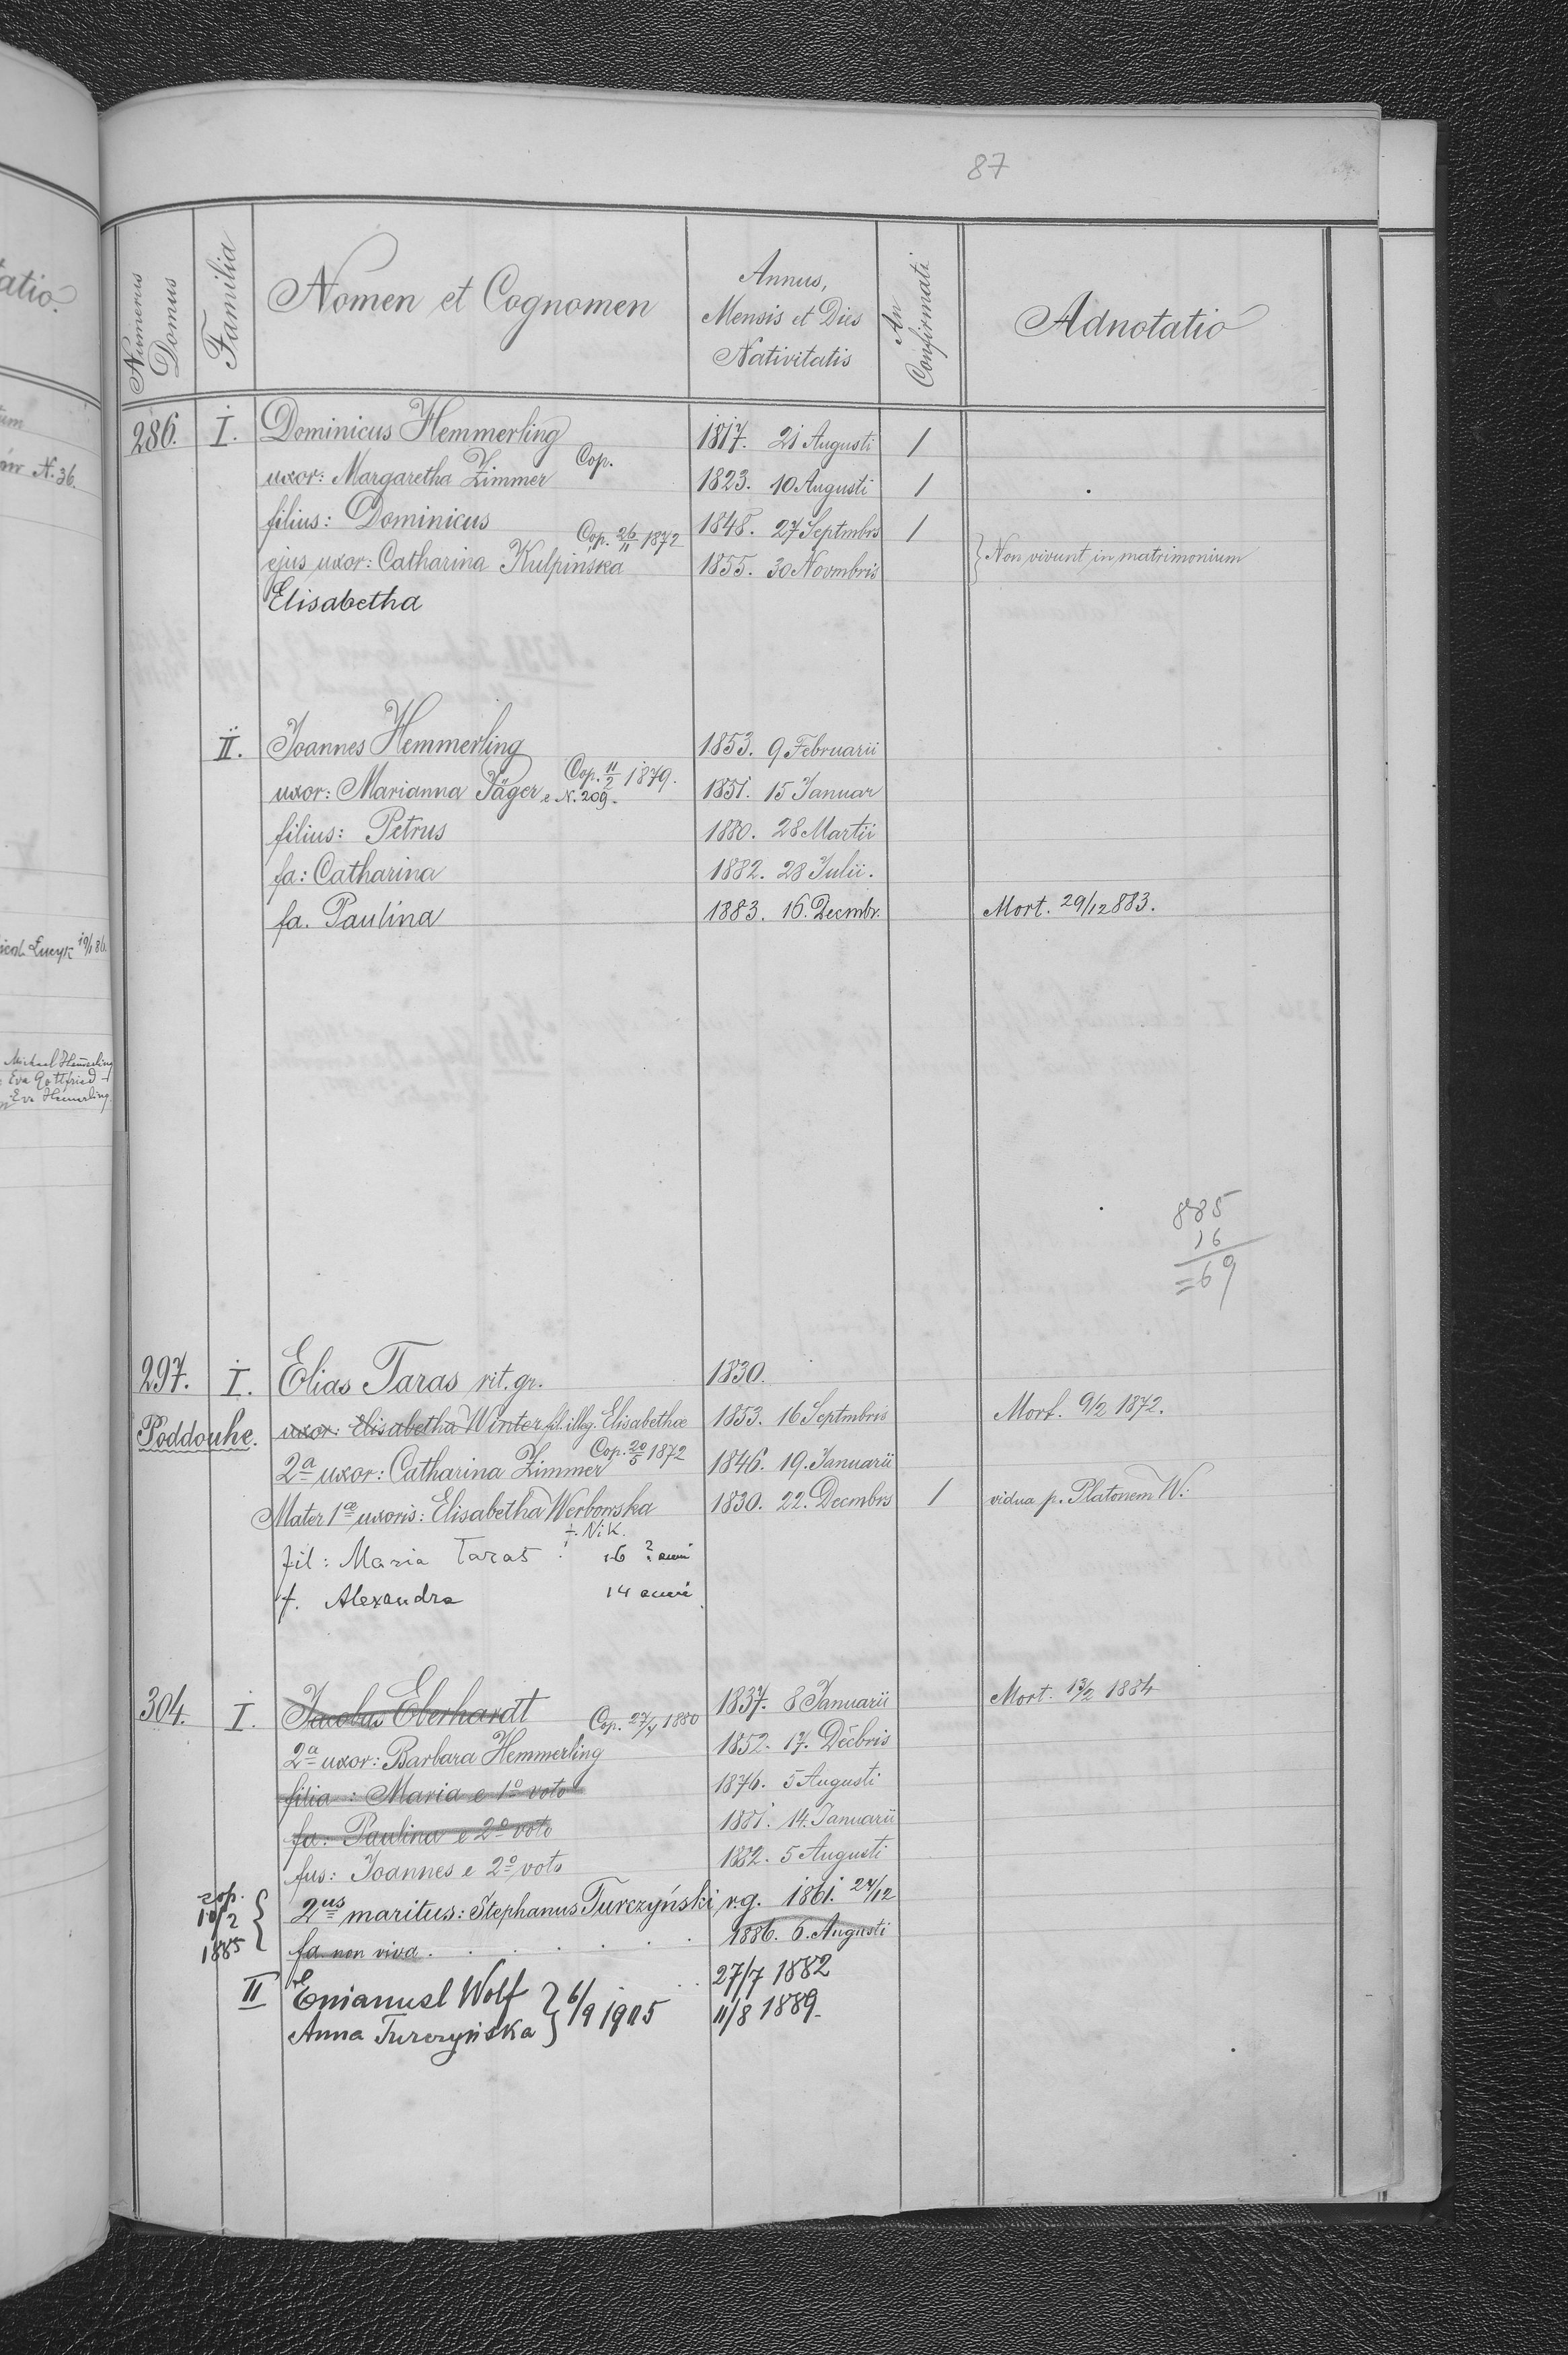 87
Numerus Domus
Familia
Nomen et Cognomen
Annus,
Mensis et Dies
Nativitatis
An Confirmati
Adnotatio
286. I. Dominicus Hemmerling 1817. 21 Augusti 1
Cop.
uxor: Margaretha Zimmer 1823. 10 Augusti 1
filius: Dominicus 1848. 27 Septmbrs 1
Cop. 26/11 1872
ejus uxor: Catharina Kulpinska 1855. 30 Novmbris } Non vivunt in matrimonium
Elisabetha
II. Joannes Hemmerling 1853. 9 Februarii
Cop. 11/2 1879.
uxor: Marianna Jäger e N. 209. 1851. 15 Januar
filius: Petrus 1880. 28 Martii
fa: Catharina 1882. 28 Julii.
fa. Paulina 1883. 16. Decmbr. Mort. 29/12 883.
885
16
=69
297. I. Elias Taras rit. gr. 1830.
Poddouhe. uxor: Elisabetha Winter fil. illeg. Elisabethae 1853. 16 Septmbris Mort. 9/2 1872.
Cop. 20/5 1872
2a uxor: Catharina Zimmer 1846. 19. Januarii
Mater 1ae uxoris: Elisabetha Werbowska 1830. 22. Decmbrs 1 vidua p. Platonem W.
fil: Maria Taras 16
f. Alexandra 14
304. I. Jacobus Eberhardt 1837. 8 Januarii Mort. 13/2 1884
Cop. 27/4 1880
2a uxor: Barbara Hemmerling 1852. 17. Decbris
filia: Maria e 1o voto 1876. 5 Augusti
fa: Paulina e 2o voto 1881. 14. Januarii
fus: Joannes e 2o voto 1882. 5 Augusti
cop. 10/2 1885 { 2us maritus: Stephanus Turczyński r.g. 1861. 24/12
fa non viva. 1886. 6. Augusti
II Emanuel Wolf } 6/9 1905 27/7 1882
Anna Turczyńska 11/8 1889
N. 36.
Michael Hemerling
Eva Gottfried
Eva Hemerling